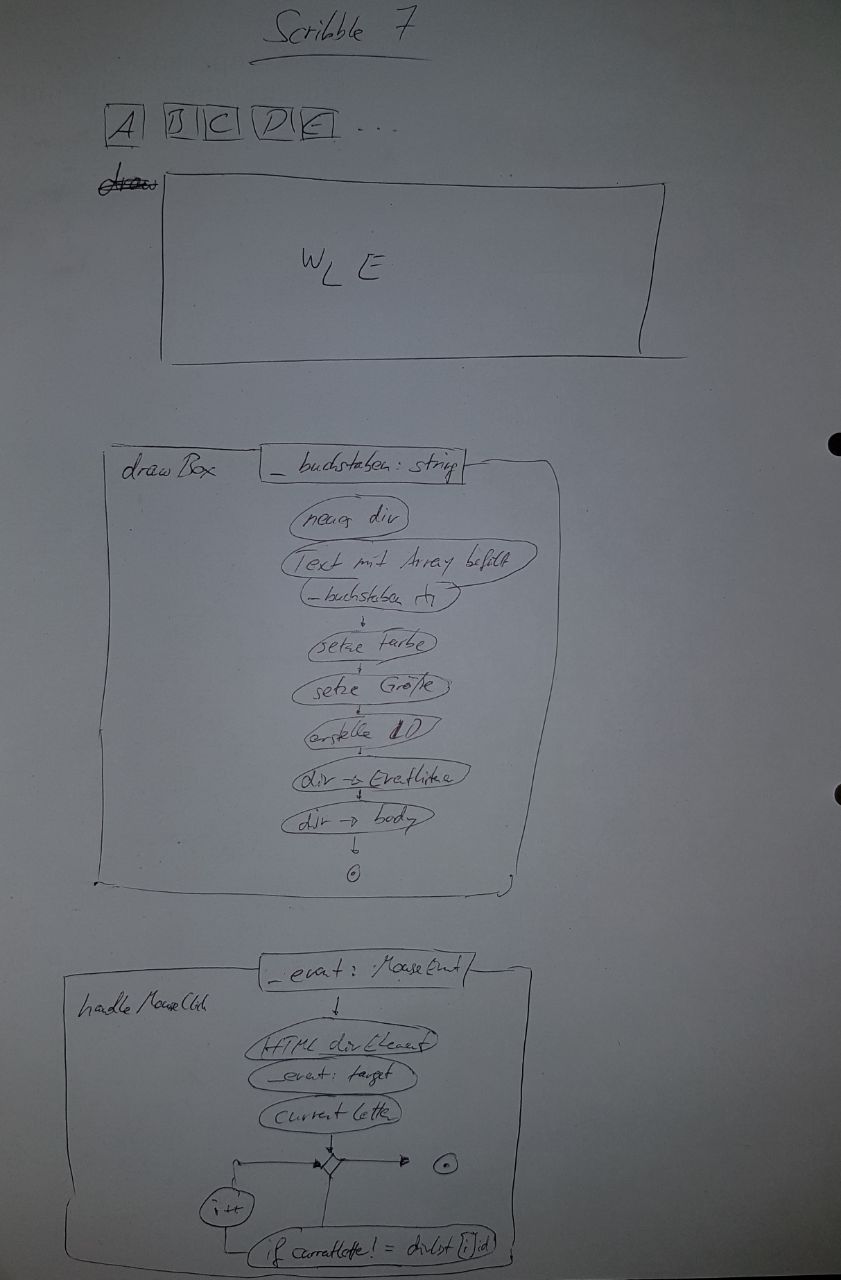 Scribble 7
A B C D E ...
draw
W L E
drawBox
_buchstaben: string
neues div
Text mit Array befüllt
_buchstaben
setze Farbe
setze Größe
erstelle ID
div → 
div → body
_event: MouseEvent
handleMouseClick
HTML divElement
_event: target
current letter
i++
if currentletter != divlist [i] id